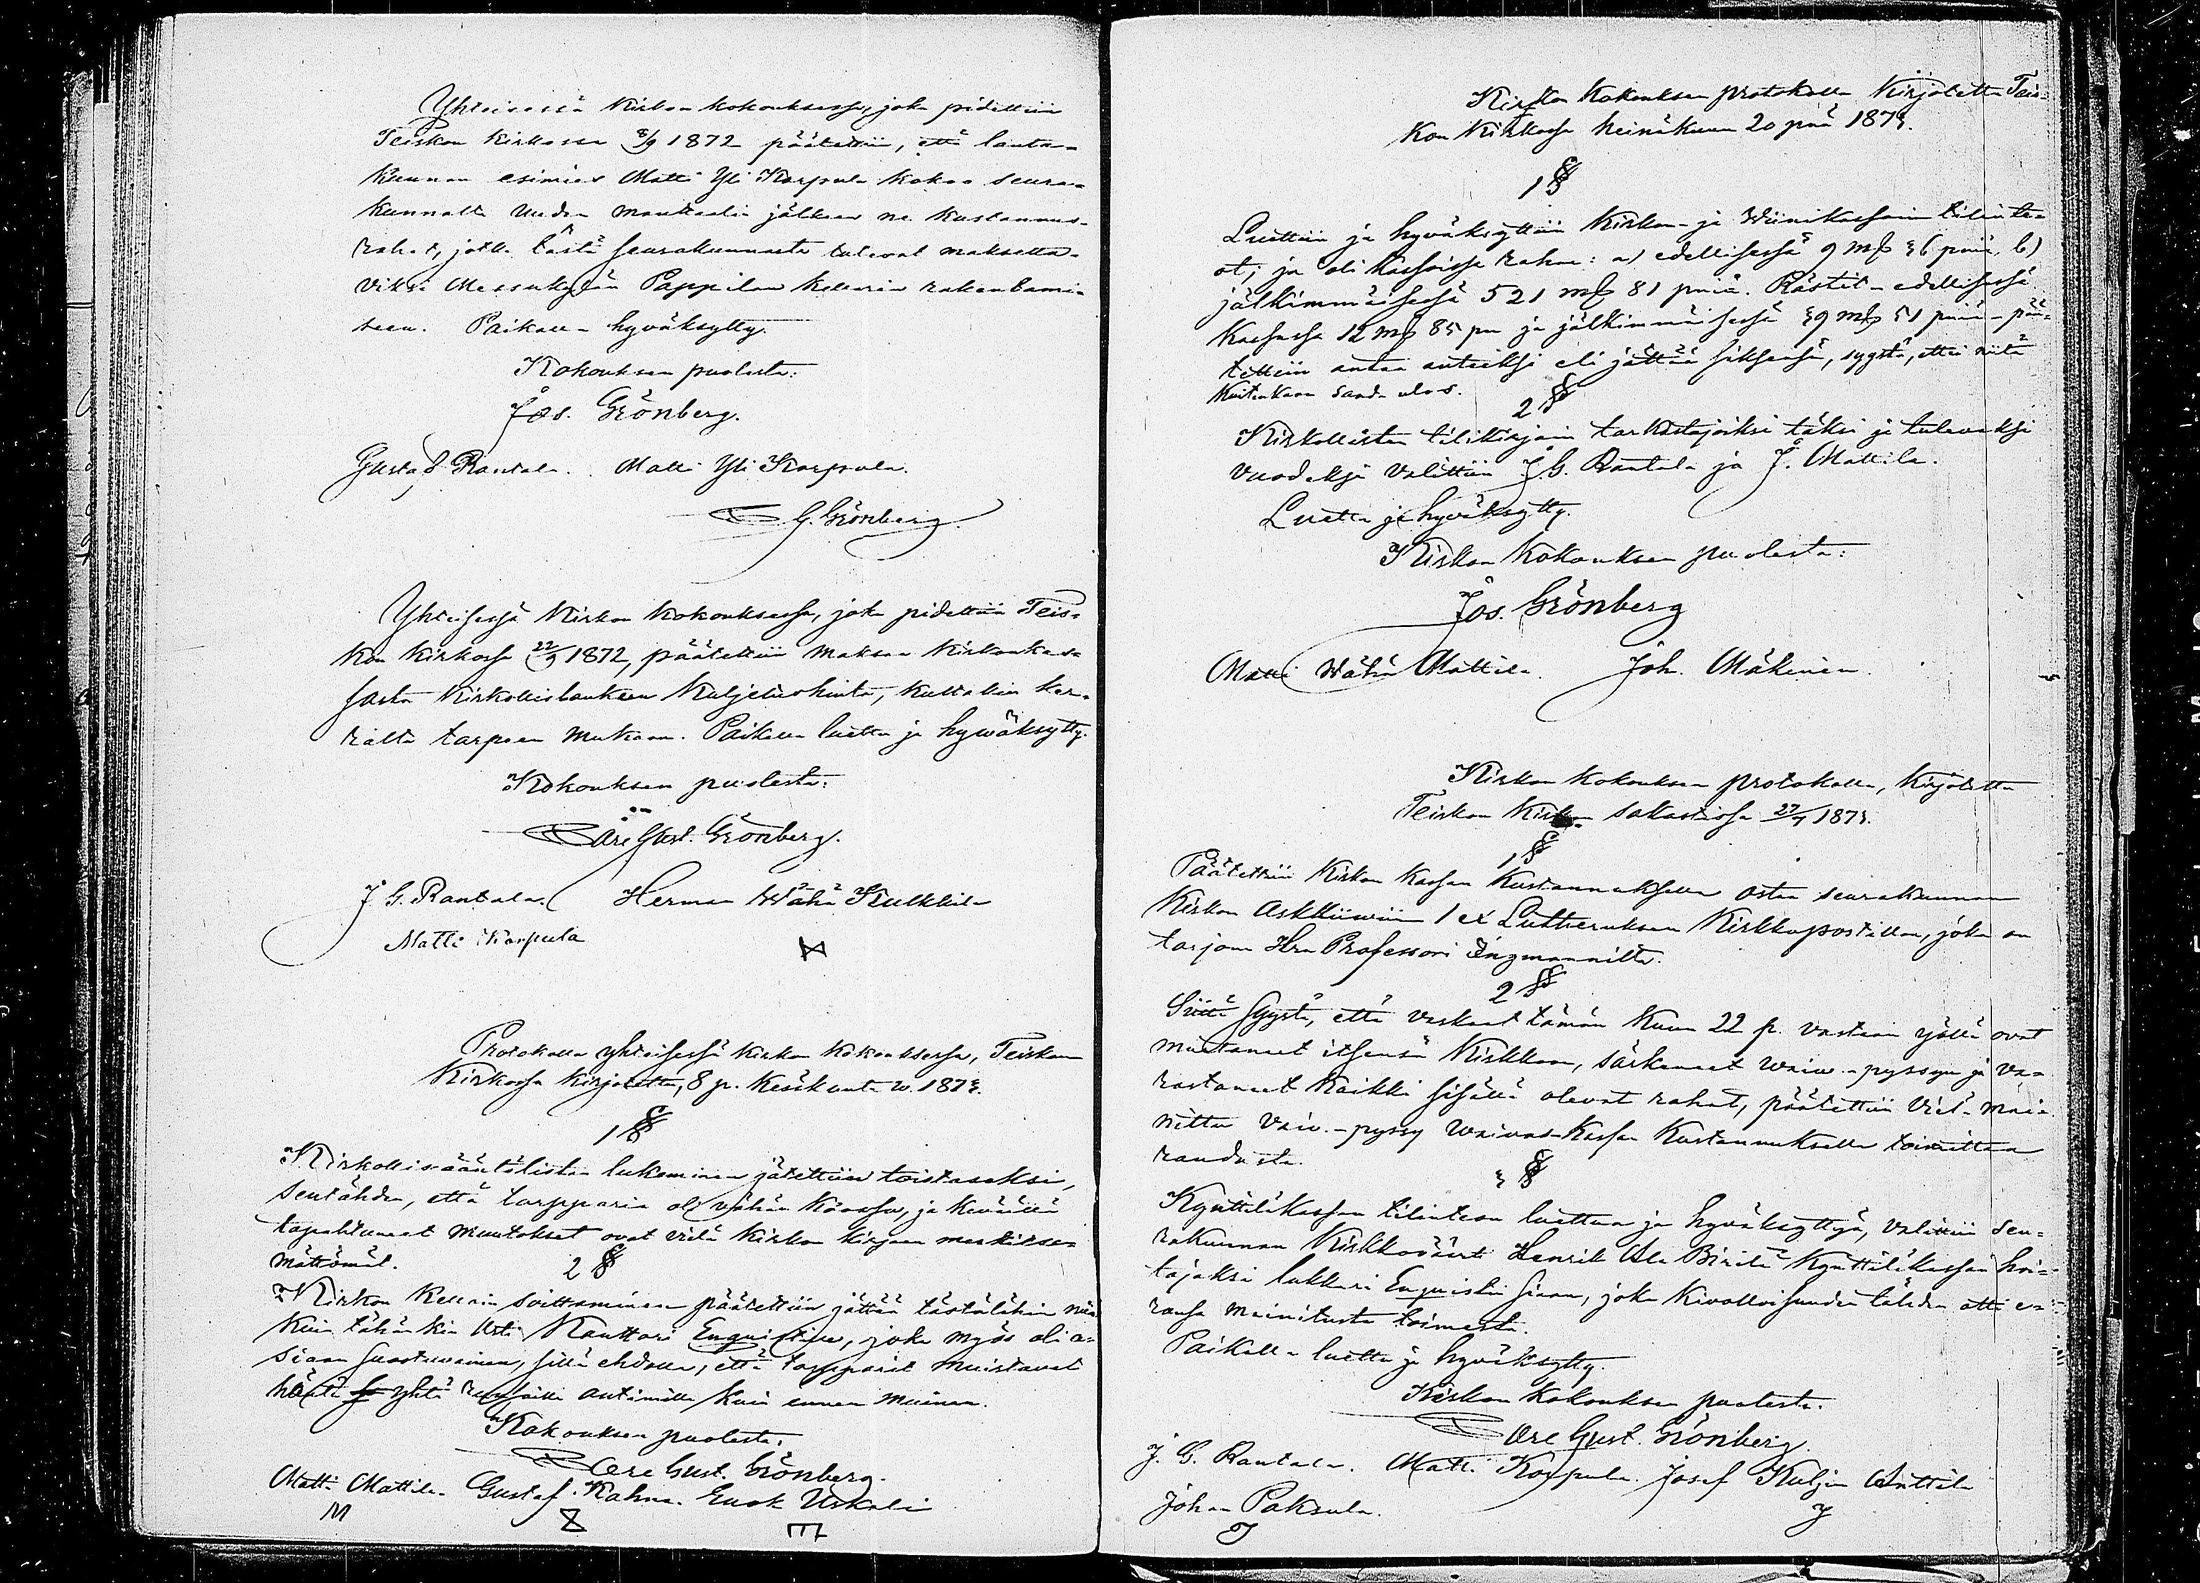 Yhteisessä Kirkon kokouksessa, joka pidettiin
Teiskon Kirkossa 8/9 1872 päätettiin, että lauta-
kunnan esimies Matti Yli Korpula kokoo seura-
kunnalta uuden manttaalin jälkeen ne kustannus-
rahat, jotka tästä seurakunnasta tulevat maksetta-
viksi Messukylän Pappilan kellarin rakentami-
seen. Paikalla hyväksytty.
Kokouksen puolesta:
Jos. Grönberg.
Gustaf Rantala. Matti Yli Korpula.
G. Grönberg.
Yhteisessä Kirkon Kokouksessa, joka pidettiin Teis-
kon Kirkossa 22/9 1872, päätettiin maksaa Kirkonkas-
sasta Kirkollislaukun Kuljetushinta, kullakin ker-
ralla tarpeen mukaan. Paikalla luettu ja hywäksytty.
Kokouksen puolesta:
Åre Gust. Grönberg.
J. G. Rantala. Herman Wähä Kulkkila
Matti Korpula
Protokolla yhteisessä Kirkon Kokouksessa, Teiskon
Kirkossa Kirjotettu, 8 p. Kesäkuuta w. 1873.
1 §
Kirkollisääntölistan lukeminen jätettiin toistaseksi,
sentähden, että torpparia oli vähän Koossa, ja keväällä
tapahtuneet muutokset ovat vielä Kirkon kirjaan merkitse-
mättömät.
2 §
Kirkon Kelloin soittaminen päätettiin jättää tästälähin niin
kuin tähänkin asti Kanttori Enqvistille, joka myös oli a-
siaan suostuvainen, sillä ehdolla, että torpparit muistavat
häntä yhtä runsailla antimilla kuin ennen muinen.
Kokouksen puolesta:
Are Gust. Grönberg.
Matti Mattila. Gustaf. Kahna. Enok Uskali
M
Kirkon Kokouksen protokolla Kirjotettu Teis-
kon Kirkossa heinäkuun 20 pnä 1873.
1 §
Luettiin ja hyväksyttiin Kirkon- ja Wiinikassain tilinte-
ot; ja oli kassoissa rahaa: a) edellisessä 9 mk 36 pniä, b)
jälkimmäisessä 521 mk 81 pniä. Rästit - edellisessä
Kassassa 12 mk 85 pn ja jälkimmäisessä 39 mk 51 pniä - pää-
tettiin antaa anteeksi eli jättää siksensä, syystä, ettei niitä
kuitenkaan saada ulos.
2 §
Kirkollisten tilikirjain tarkastajoiksi täksi ja tulevaksi
vuodeksi valittiin J. G. Rantala ja J. Mattila.
Luettu ja hyväksytty.
Kirkon Kokouksen puolesta:
Jos. Grönberg
Matti Wähä Mattila. Joh. Mäkinen.
Kirkon Kokouksen protokolla, Kirjotettu
Teiskon Kirkon sakastiossa 27/7 1873.
1 §
Päätettiin Kirkon kassan Kustannuksella ostaa seurakunnan
Kirkon Arkkiiwiin 1 ex Lutheruksen Kirkkopostillan, jota on
tarjona Hra Professori Ingmannilta.
2 §
Siitä syystä, että varkaat tämän Kuun 22 p. vastaan yöllä ovat
murtaneet itsensä Kirkkoon, särkeneet waiw.-pyssyn ja va-
rastaneet kaikki sisällä olevat rahat, päätettiin vielä mai-
nittu vaiv.-pyssy Waivas-Kassan Kustannuksella toimittaa
raudasta.
3 §
Kynttiläkassan tilinteon luettua ja hyväksyttyä, valittiin Seu-
rakunnan Kirkkoväärti Henrik Ala Birilä Kynttiläkassan hoi-
tajaksi lukkari Enqvistin sijaan, joka kivulloisuuden tähden otti e-
ronsa mainitusta toimesta.
Paikalla luettu ja hyväksytty.
Kirkon Kokouksen puolesta:
Are Gust. Grönberg.
J. G. Rantala. Matti Korpula. Josef Kulju Anttila
Johan Paksula.
J
J